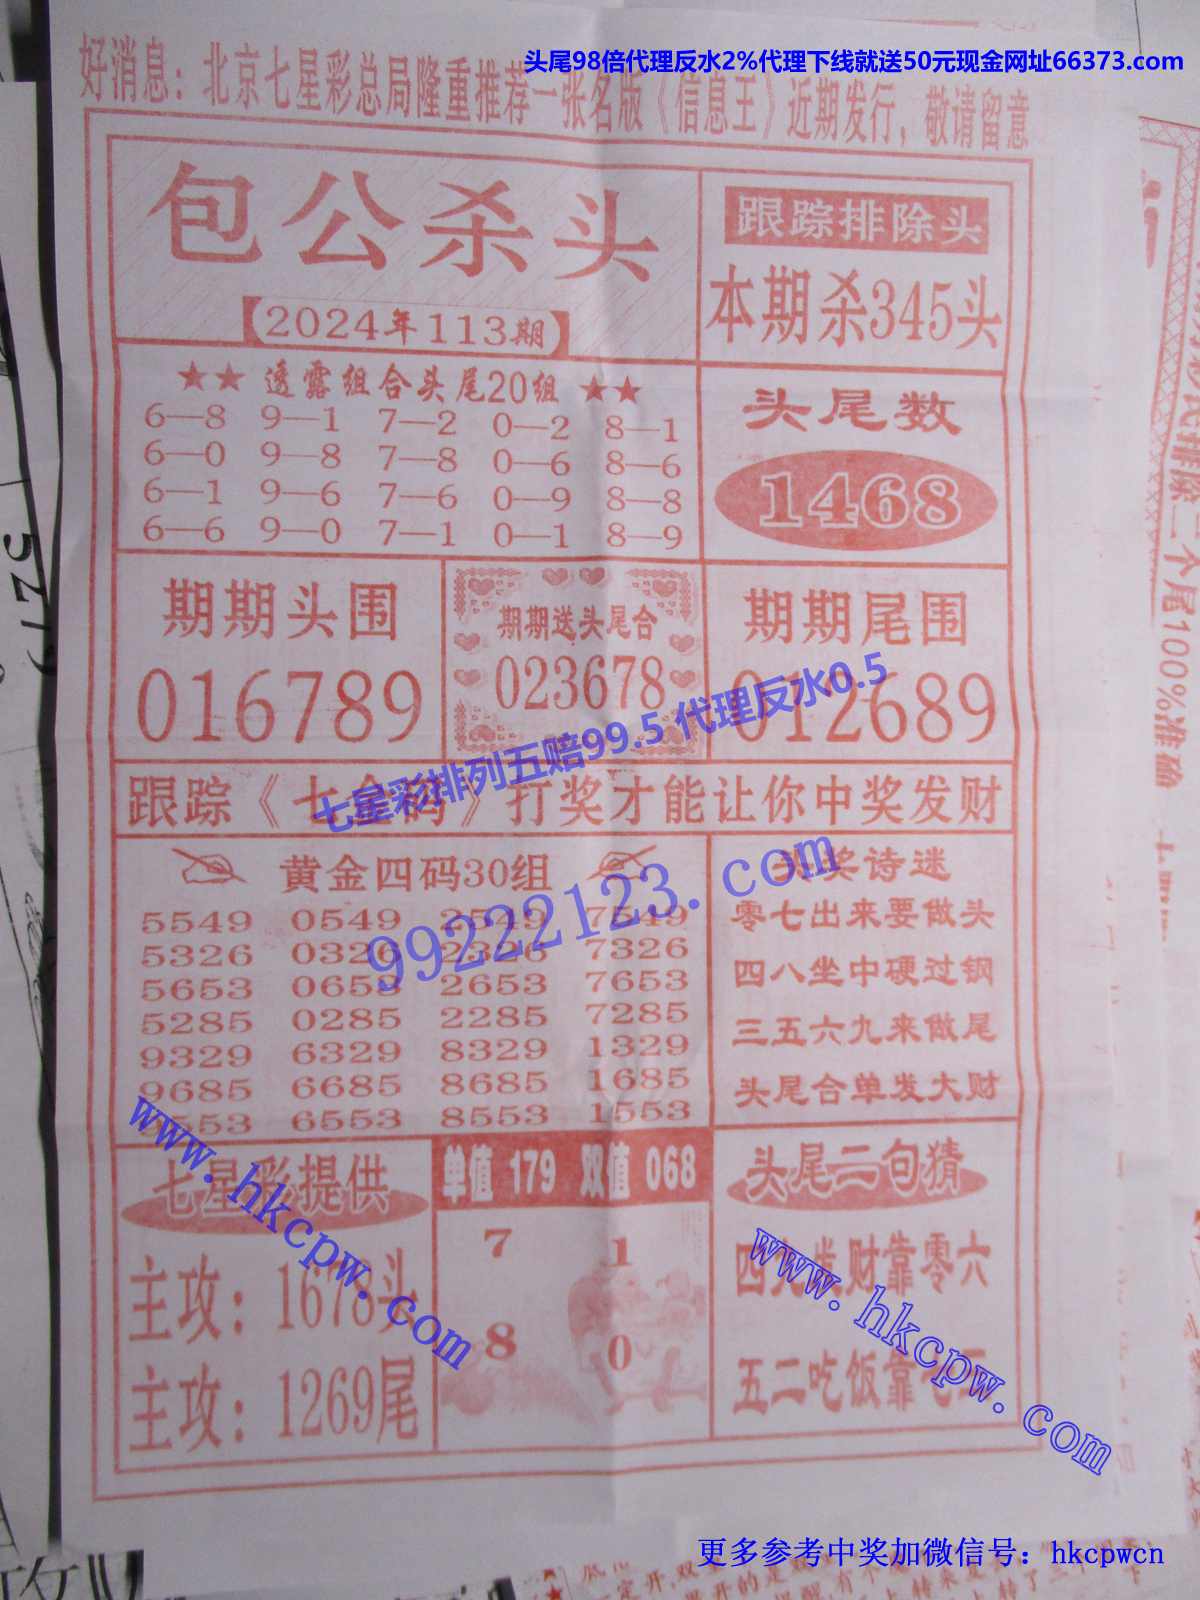 头尾98倍代理反水2%代理下线就送50元现金网址66373.com
好消息：北京七星彩总局隆重推荐一张名版《信息王》近期发行，敬请留意
包公杀头
【2024年113期】
跟踪排除头
本期杀345头
★★ 透露组合头尾20组 ★★
6—8 9—1 7—2 0—2 8—1
6—0 9—8 7—8 0—6 8—6
6—1 9—6 7—6 0—9 8—8
6—6 9—0 7—1 0—1 8—9
头尾数
1468
期期头围
016789
期期送头尾合
023678
期期尾围
012689
七星彩排列五赔99.5 代理反水0.5
跟踪《七金码》打奖才能让你中奖发财
黄金四码30组
5549 0549 2549 7549
5326 0326 2326 7326
5653 0653 2653 7653
5285 0285 2285 7285
9329 6329 8329 1329
9685 6685 8685 1685
553 6553 8553 1553
99222123.com
头奖诗迷
零七出来要做头
四八坐中硬过钢
三五六九来做尾
头尾合单发大财
七星彩提供
主攻：1678头
主攻：1269尾
www.hkcpw.com
单值 179 双值 068
7 1
8 0
头尾二句猜
四九发财靠零六
五二吃饭靠七三
www.hkcpw.com
更多参考中奖加微信号：hkcpwcn
5279
不尾100%准确